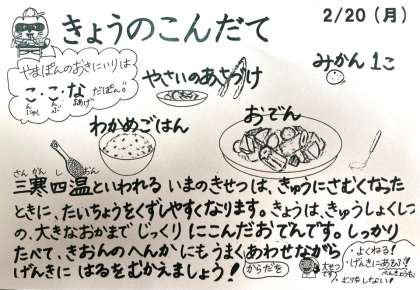 きょうのこんだて
2/20（月）
やまぽんのおきにいりは
こ・こ・な だぽん!!
んにゃく
んぶ
まあげ
やさいのあさづけ
みかん1こ
わかめごはん
おでん
さんかんしおん
三寒四温といわれる いまのきせつは、きゅうにさむくなった
ときに、たいちょうをくずしやすくなります。きょうは、きゅうしょくしつ
の、大きなおかまで じっくり にこんだおでんです。しっかり
たべて、きおんのへんかにもうまくあわせながら
げんきに はるをむかえましょう!
からだを
大せつ
です
・よくねる!
・げんきにあそぶ!
べんきょうも
・むりをしない!